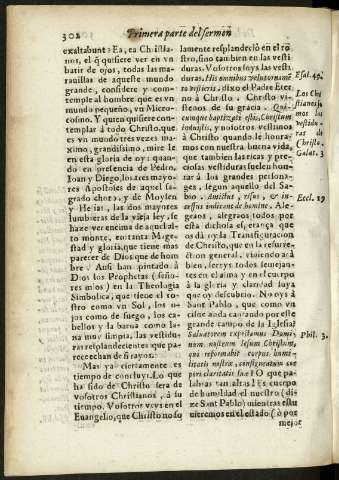 302 Primera parte del sermõ
exaltabunt? Ea, ea Christia-
nos, el q̃ quisiere ver en vn
batir de ojos, todas las ma-
rauillas de aquel mundo
grande, considere y con-
temple al hombre que es vn
mundo pequeño, vn Micro-
cosmo. Y quien quisiere con-
templar á todo Christo, que
es vn mundo tres vezes ma-
ximo, grandissimo, mire le
en esta gloria de oy: quan-
do en presencia de Pedro,
Ioan y Diego, los tres mayo-
res Apostoles de aquel sa-
grado choro; y de Moysen
y Helias, las dos mayores
lumbreras de la vieja ley, se
haze ver encima de aquel al-
to monte, en tanta Mage-
stad y gloria, que tiene mas
parecer de Dios que de hom
bre. Ansi han pintado à
Dios los Prophetas (seño-
res mios) en la Theologia
Simbolica, que tiene el ro-
stro como vn Sol, los o-
jos como de fuego, los ca-
bellos y la barua como la-
na muy limpia, las vestidu-
ras resplandecientes que pa-
recen echan de si rayos.
Mas ya ciertamente es
tiempo de concluyr. Lo que
ha sido de Christo sera de
vosotros Christianos, á su
tiempo. Vosotros veys en el
Euangelio, que Christo no so
lamente resplandeció en el ro
stro, sino tambien en las vesti
duras. Vosotros soys las vesti
duras. His omnibus velut ornamẽ
to vestieris, dixo el Padre Eter
no à Christo: Christo vi-
stenos de su gracia. Qui-
cunque baptizati estis, Christum
induistis, y nosotros vestimos
à Christo quando le honra-
mos con nuestra buena vida,
que tambien las ricas y pre-
ciosas vestiduras hazen hon-
rar á los grandes persona-
ges, segun aquello del Sa-
bio. Amictus, risus, & in-
cessus indicant de homine. Ale
graos, alegraos todos por
esta dichosa esperança que
os dà oy la Transfiguracion
de Christo, que en la resurre-
ction general, viuiendo aca
bien, sereys todos semejan-
tes en el alma y en el cuerpo
à la gloria y claridad suya
que oy descubrio. No oys à
Sant Pablo, que como vn
cisne anda cantando por este
grande campo de la Iglesia?
Saluatorem expectamus Domi-
num nostrum Iesum Christum,
qui reformabit corpus humi-
litatis nostræ, configuratum cor-
pori claritatis suæ? O que pa-
labras tan altas! Es cuerpo
de humildad el nuestro (di-
ze Sant Pablo) mientras estu
uieremos en el estado (ò por
mejor
Esai. 49.
Los Chri
stianos so
mos las
vestidu-
ras de
Christo.
Galat. 3
Eccl. 19
Phil. 3.